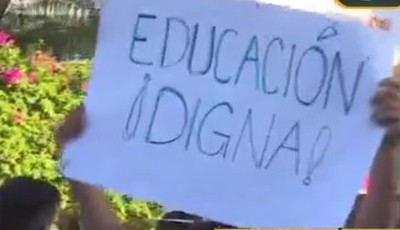 EDUCACIÓN
¡DIGNA!